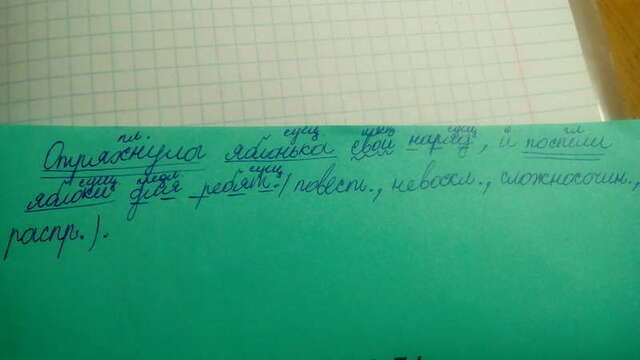 гл. сущ мест сущ гл.
Отряхнула яблонька свой наряд, и поспели
сущ предл. сущ
яблоки для ребят. (повеств., невоскл., сложносочин.,
распр.).